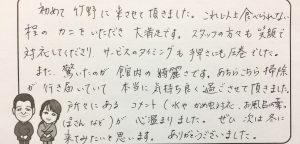 初めて 竹野に 来させて頂きました。これ以上食べられない
程の カニをいただき 大満足です。スタッフの方々も 笑顔で
対応してくださり サービスのタイミングも 手早さにも圧巻でした。
また、驚いたのが 館内の 綺麗さです。あちらこちら掃除
が 行き届いていて 本当に気持ち良く 過ごさせて頂きました。
所々にある コメント (水や かめむし対応、お風呂の
など) が 心温まりました。ぜひ 次は冬に
来てみたいと思います。 ありがとうございました。